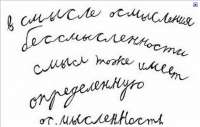 в смысле осмысления
бессмысленности
смысл тоже имеет
определенную
осмысленность